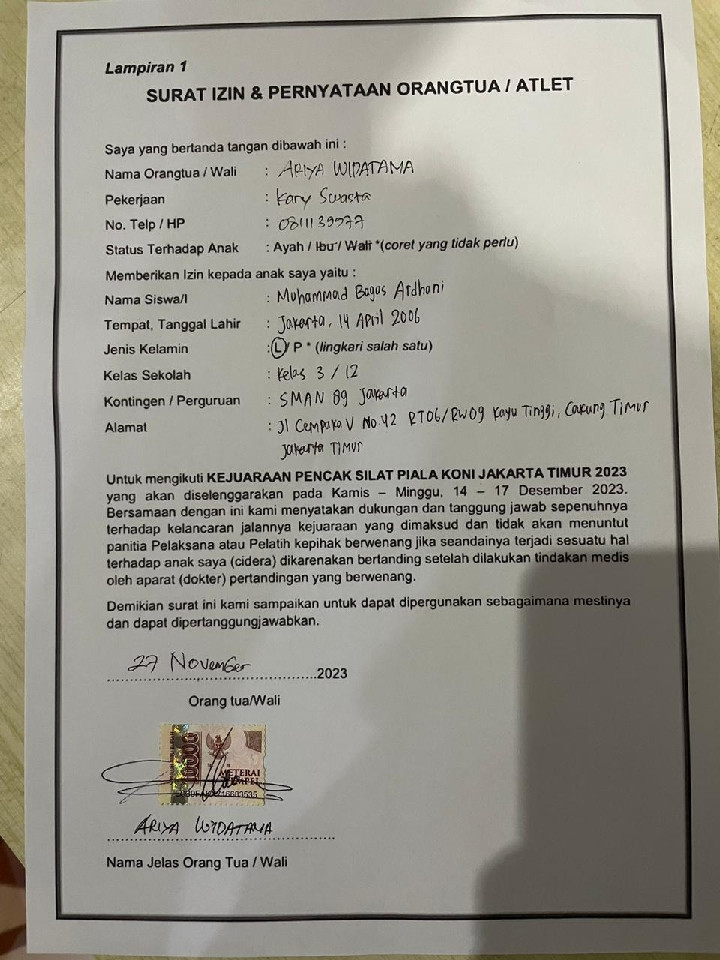 Lampiran 1
SURAT IZIN & PERNYATAAN ORANGTUA / ATLET
Saya yang bertanda tangan dibawah ini :
Nama Orangtua / Wali : ARIYA WIDATAMA
Pekerjaan : Kary Swasta
No. Telp / HP : 0811139577
Status Terhadap Anak : Ayah / Ibu*/ Wali *(coret yang tidak perlu)
Memberikan Izin kepada anak saya yaitu :
Nama Siswa/I : Muhammad Bagus Ardhani
Tempat, Tanggal Lahir : Jakarta, 14 April 2006
Jenis Kelamin : L / P * (lingkari salah satu)
Kelas Sekolah : Kelas 3 / 12
Kontingen / Perguruan : SMAN 89 Jakarta
Alamat : Jl Cempaka V No.42 RT06/RW09 Kayu Tinggi, Cakung Timur
Jakarta Timur
Untuk mengikuti KEJUARAAN PENCAK SILAT PIALA KONI JAKARTA TIMUR 2023
yang akan diselenggarakan pada Kamis – Minggu, 14 – 17 Desember 2023.
Bersamaan dengan ini kami menyatakan dukungan dan tanggung jawab sepenuhnya
terhadap kelancaran jalannya kejuaraan yang dimaksud dan tidak akan menuntut
panitia Pelaksana atau Pelatih kepihak berwenang jika seandainya terjadi sesuatu hal
terhadap anak saya (cidera) dikarenakan bertanding setelah dilakukan tindakan medis
oleh aparat (dokter) pertandingan yang berwenang.
Demikian surat ini kami sampaikan untuk dapat dipergunakan sebagaimana mestinya
dan dapat dipertanggungjawabkan.
27 November 2023
Orang tua/Wali
10000
METERAI
TEMPEL
ARIYA WIDATAMA
Nama Jelas Orang Tua / Wali